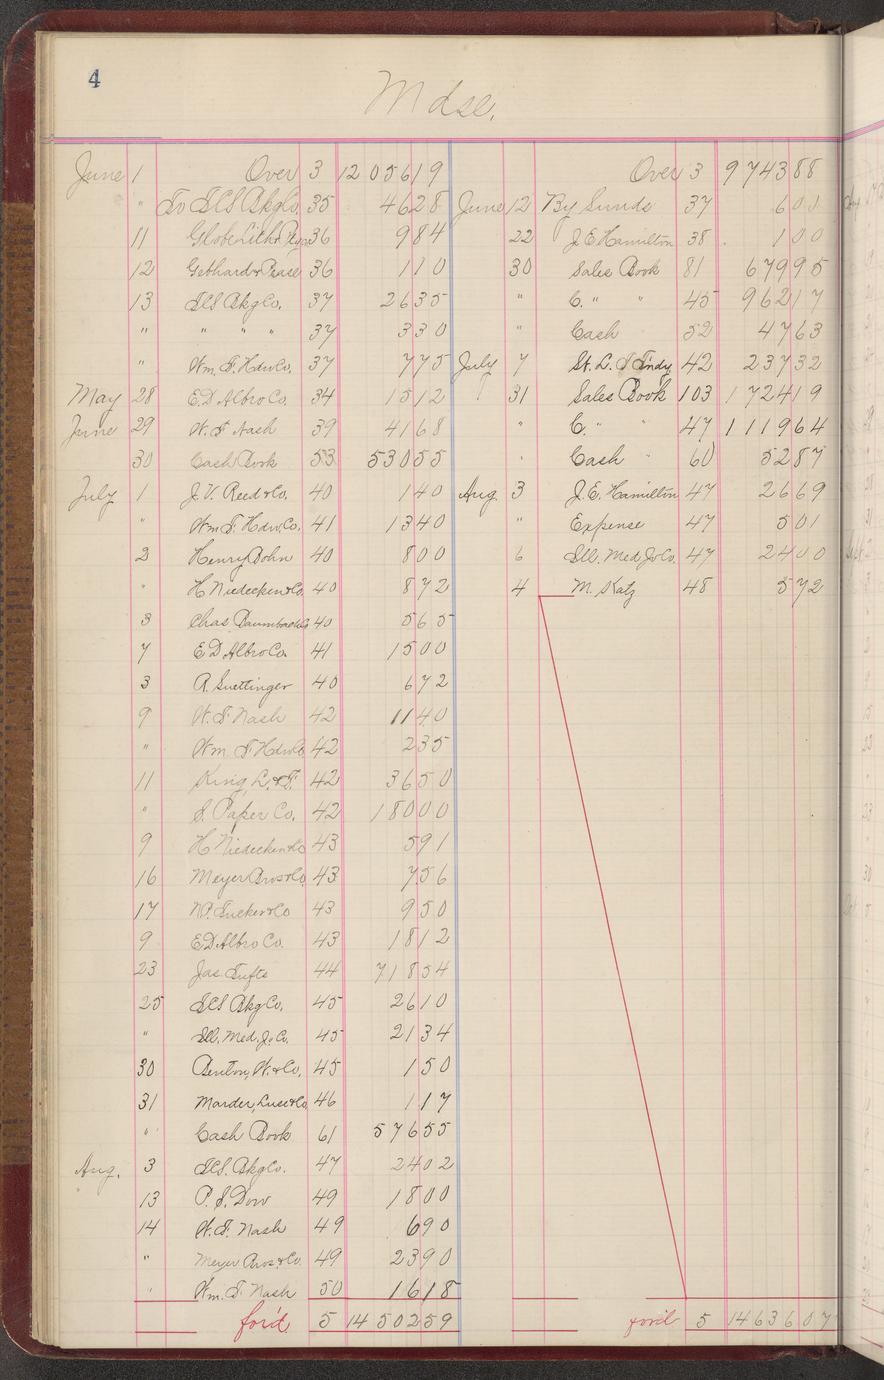 4
Mdse.
June 1 Over 3 1205619
" To ICS Bkg Co. 35 4628
11 Globe Lith & 36 984
12 Gebhard & Pease 36 110
13 ICS Bkg Co. 37 2635
" " " " 37 330
" Wm. F. Hdw Co. 37 775
May 28 E.D. Albro Co. 34 1512
June 29 W. F. Nash 39 4168
30 Cash Book 53 53055
July 1 J. V. Reed & Co. 40 140
" Wm F. Hdw. Co. 41 1340
2 Henry Bohn 40 800
" H Niedecken & Co. 40 872
3 Chas Baumbach Co 40 565
7 E D Albro Co. 41 1500
3 A. Suettinger 40 672
9 W. F. Nash 42 1140
" Wm. F. Hdw Co 42 235
11 King, L. & F. 42 3650
" S. Paper Co. 42 18000
9 H Niedecken & Co 43 591
16 Meyer Bros & Co. 43 756
17 N.P. Tucker & Co 43 950
9 E D Albro Co. 43 1812
23 Jas. Tufts 44 71854
25 ICS Bkg Co. 45 2610
" Ill. Med. J. Co. 45 2134
30 Benton, W. & Co. 45 150
31 Marder, Luse & Co 46 117
" Cash Book 61 57655
Aug. 3 ICS. Bkg Co. 47 2402
13 P. S. Dow 49 1800
14 W. F. Nash 49 690
" Meyer Bros. & Co. 49 2390
" Wm. F. Nash 50 1618
for'd. 5 1450259
Over 3 974388
June 12 By Sunds 37 600
22 J. E. Hamilton 38 100
30 Sales Book 81 67995
" C. " " 45 96217
" Cash 52 4763
July 7 St. L. & Indy 42 23732
31 Sales Book 103 172419
" C. " " 47 111964
" Cash " 60 5287
Aug. 3 J. E. Hamilton 47 2669
" Expense 47 501
6 Ill. Med. J. Co. 47 2400
4 M. Katz 48 572
for'd 5 1463607